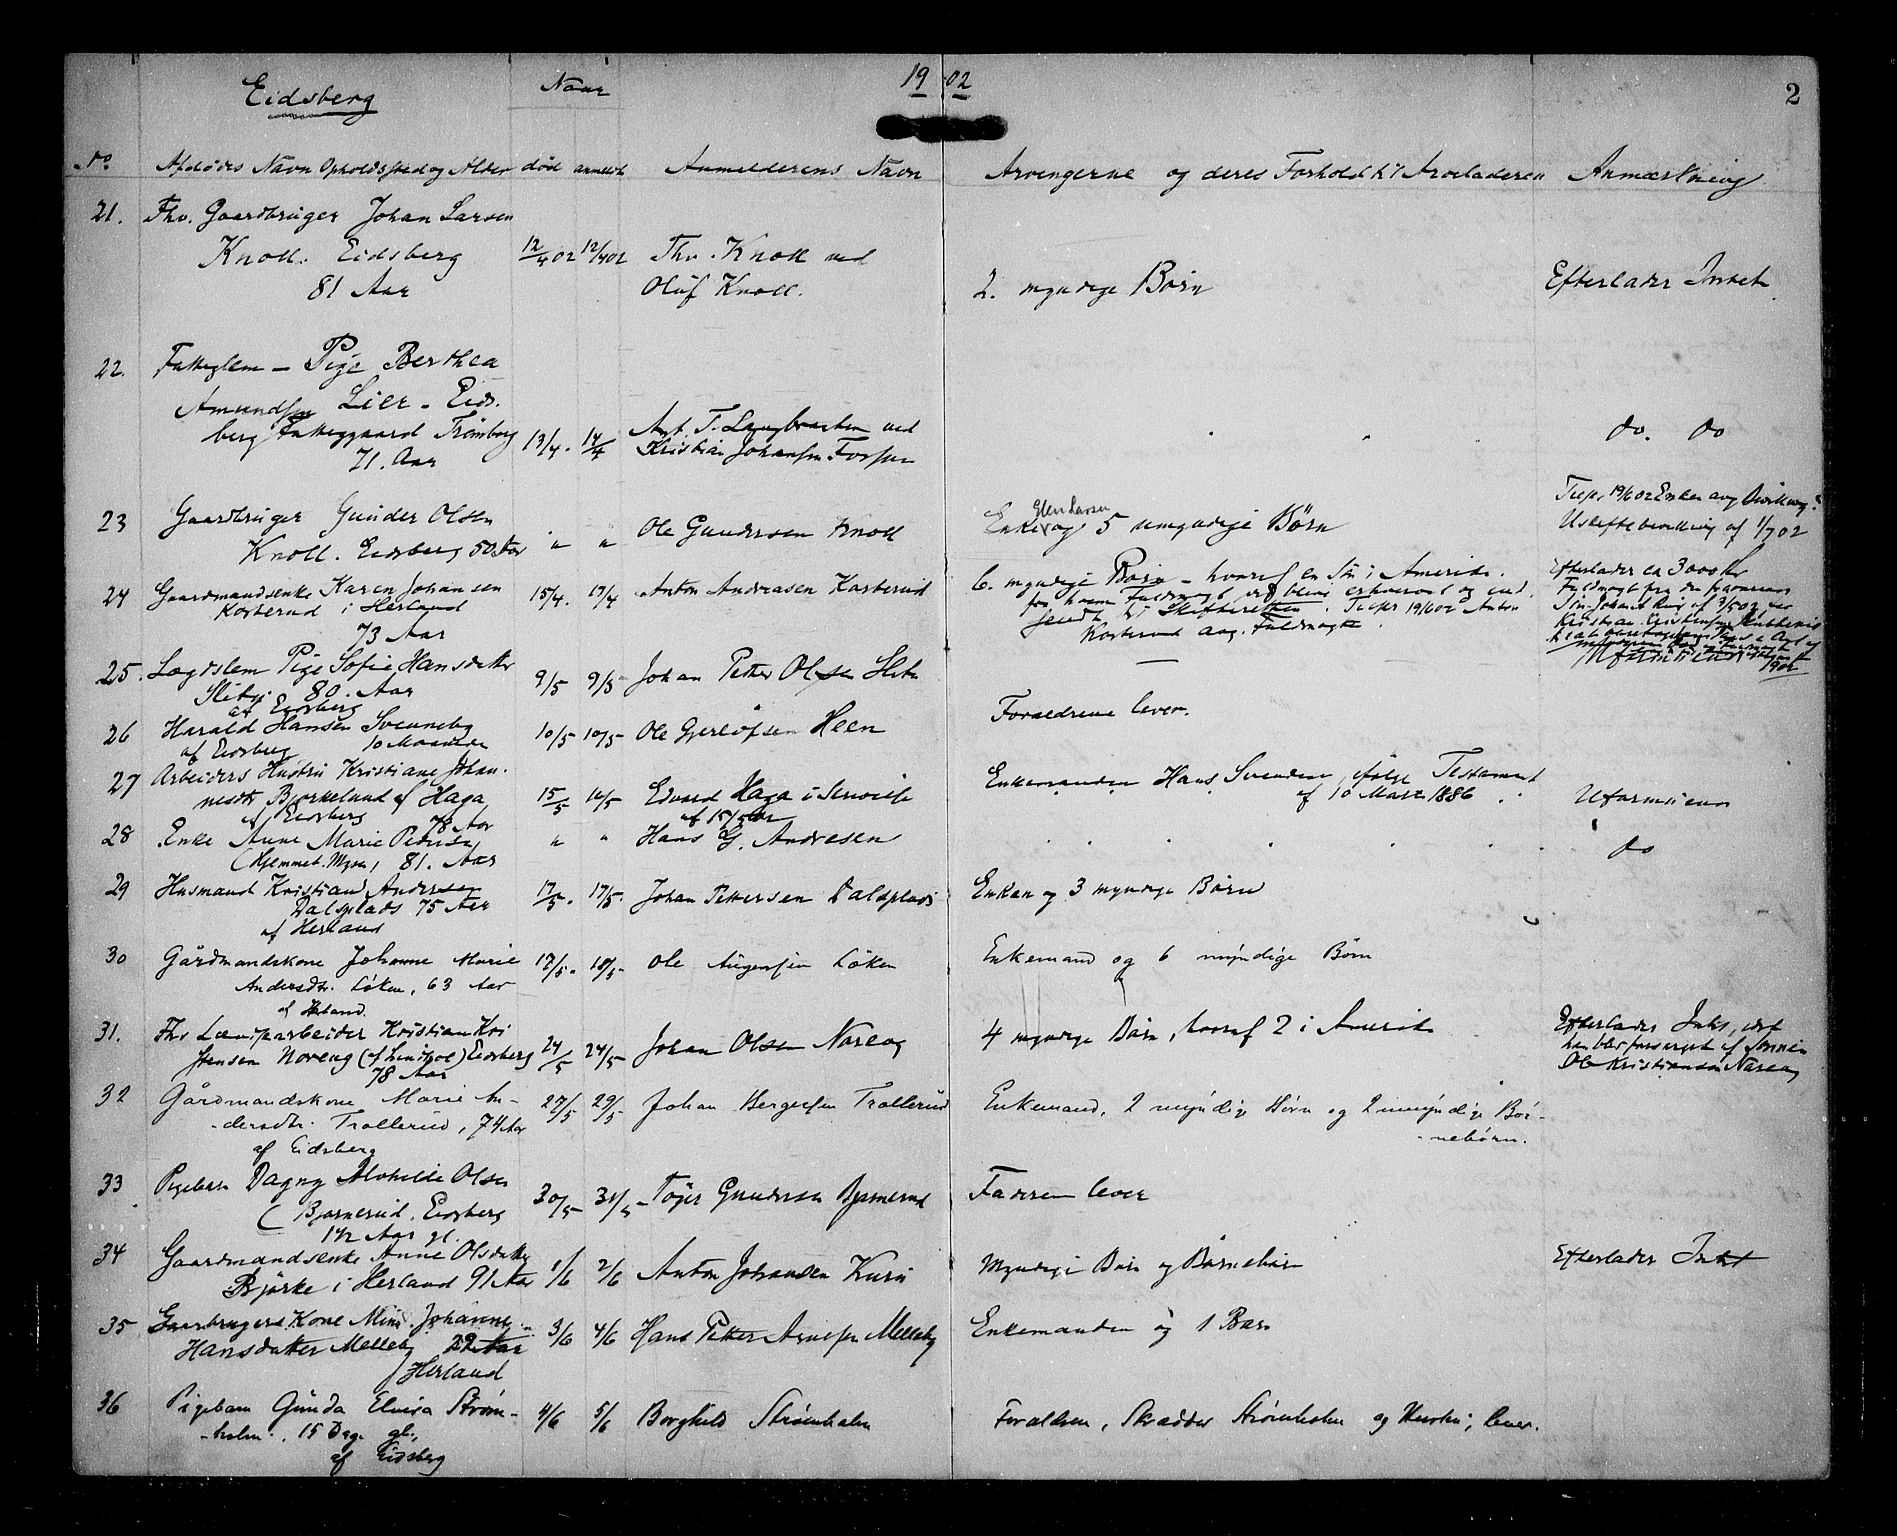 Eidsberg
Naar
19 02
2
No
Afdødes Navn Opholdssted og Alder død anmeldt Anmelderens Navn Arvingerne og deres Forhold til Arveladeren Anmærkning
21. Fhv. Gaardbruger Johan Larsen
Knoll. Eidsberg 12/4 02 12/4 02 Fhv. Knoll ved
81 Aar Oluf Knoll. 2. myndige Børn Efterlader Intet
22. Fattiglem - Pige Berthea
Amundsen Lier - Eids-
berg Fattiggaard Trømborg 13/4. 14/4 T. Langbraaten ved do. do
71. Aar Kristian Johansen
23 Gaardbruger Gunder Olsen Enke og 5 umyndige Børn
Knoll. Eidsberg 50 Aar " " Ole Gundersen Knoll Uskiftebevilling af 1/7 02
24 Gaardmandsenke Karen Johansen 15/4. 17/4 Anton Andreasen Kasterud 6. myndige Børn - hvoraf en Søn i Amerika. Efterlader ca 3000 Kr
Kasterud i Herland for hvem Fuldmagt vil blive erhvervet og ind-
73 Aar sendt til Skifteretten. 19/6 02 Anton
Kasterud Fuldmagt
1902
25. Lægdslem Pige Sofie Hansdatter
80. Aar 9/5 9/5 Johan Petter Olsen —
af Eidsberg
26 Harald Hansen Svenneby 10/5 10/5 Ole Gjerløfsen Heen Forældrene lever.
af Eidsberg 10 Maaneder
27 Arbeiders Hustru Kristiane Johan-
nesdtr Bjørkelund af Haga 15/5 16/5 Edvard Haga Enkemanden Hans Svendsen, ifølge Testament
af Eidsberg 78 Aar af 15/5 02 af 10 Marts 1886 Uformuende
28 Enke Anne Marie Pedersen " " Hans G. Andresen do
(Hjemmet. Mysen) 81. Aar
29 Husmand Kristian Andersen 17/5. 17/5. Johan Pettersen Dalsplads Enken og 3 myndige Børn
Dalsplads 75 Aar
af Herland
30 Gårdmandskone Johanne Marie 17/5. 18/5. Ole Augensen Løken Enkemand og 6 myndige Børn
Andersdtr. Løken, 63 Aar
af Herland.
31. Fhv Kristian Kri
stensen Noreng Eidsberg 24/5 24/5 Johan Olsen Noreng 4 myndige Børn, hvoraf 2 i Amerika Efterlader Intet, idet
78 Aar han blev forsørget af Sønnen
Ole Kristiansen Noreng
32 Gårdmandskone Marie An-
dersdtr. Trollerud, 74 Aar 27/5 29/5 Johan Bergersen Trollerud Enkemand, 2 myndige Børn og 2 umyndige Bør-
af Eidsberg nebørn.
33 Pigebarn Dagny Mathilde Olsen
(Bjørnerud. Eidsberg 30/5 31/5 Tøger Gundersen Bjørnerud Faderen lever
1 1/2 Aar gl.
34 Gaardmandsenke Anne Olsdatter
Bjørke i Herland 91 Aar 1/6 2/6 Anton Johansen Myndige Børn og Børnebørn Efterlader Intet
35 Gaardbrugers Kone Mina Johanne
Hansdatter Melleby 29 Aar 3/6 4/6 Hans Petter Arnesen Melleby Enkemanden og 1 Barn
Herland
36 Pigebarn Gunda Elvira Strøm-
holm., 15 Dage gl., 4/6 5/6 Borghild Strømholm Forældrene, Skrædder Strømholm og Hustru, lever.
af Eidsberg